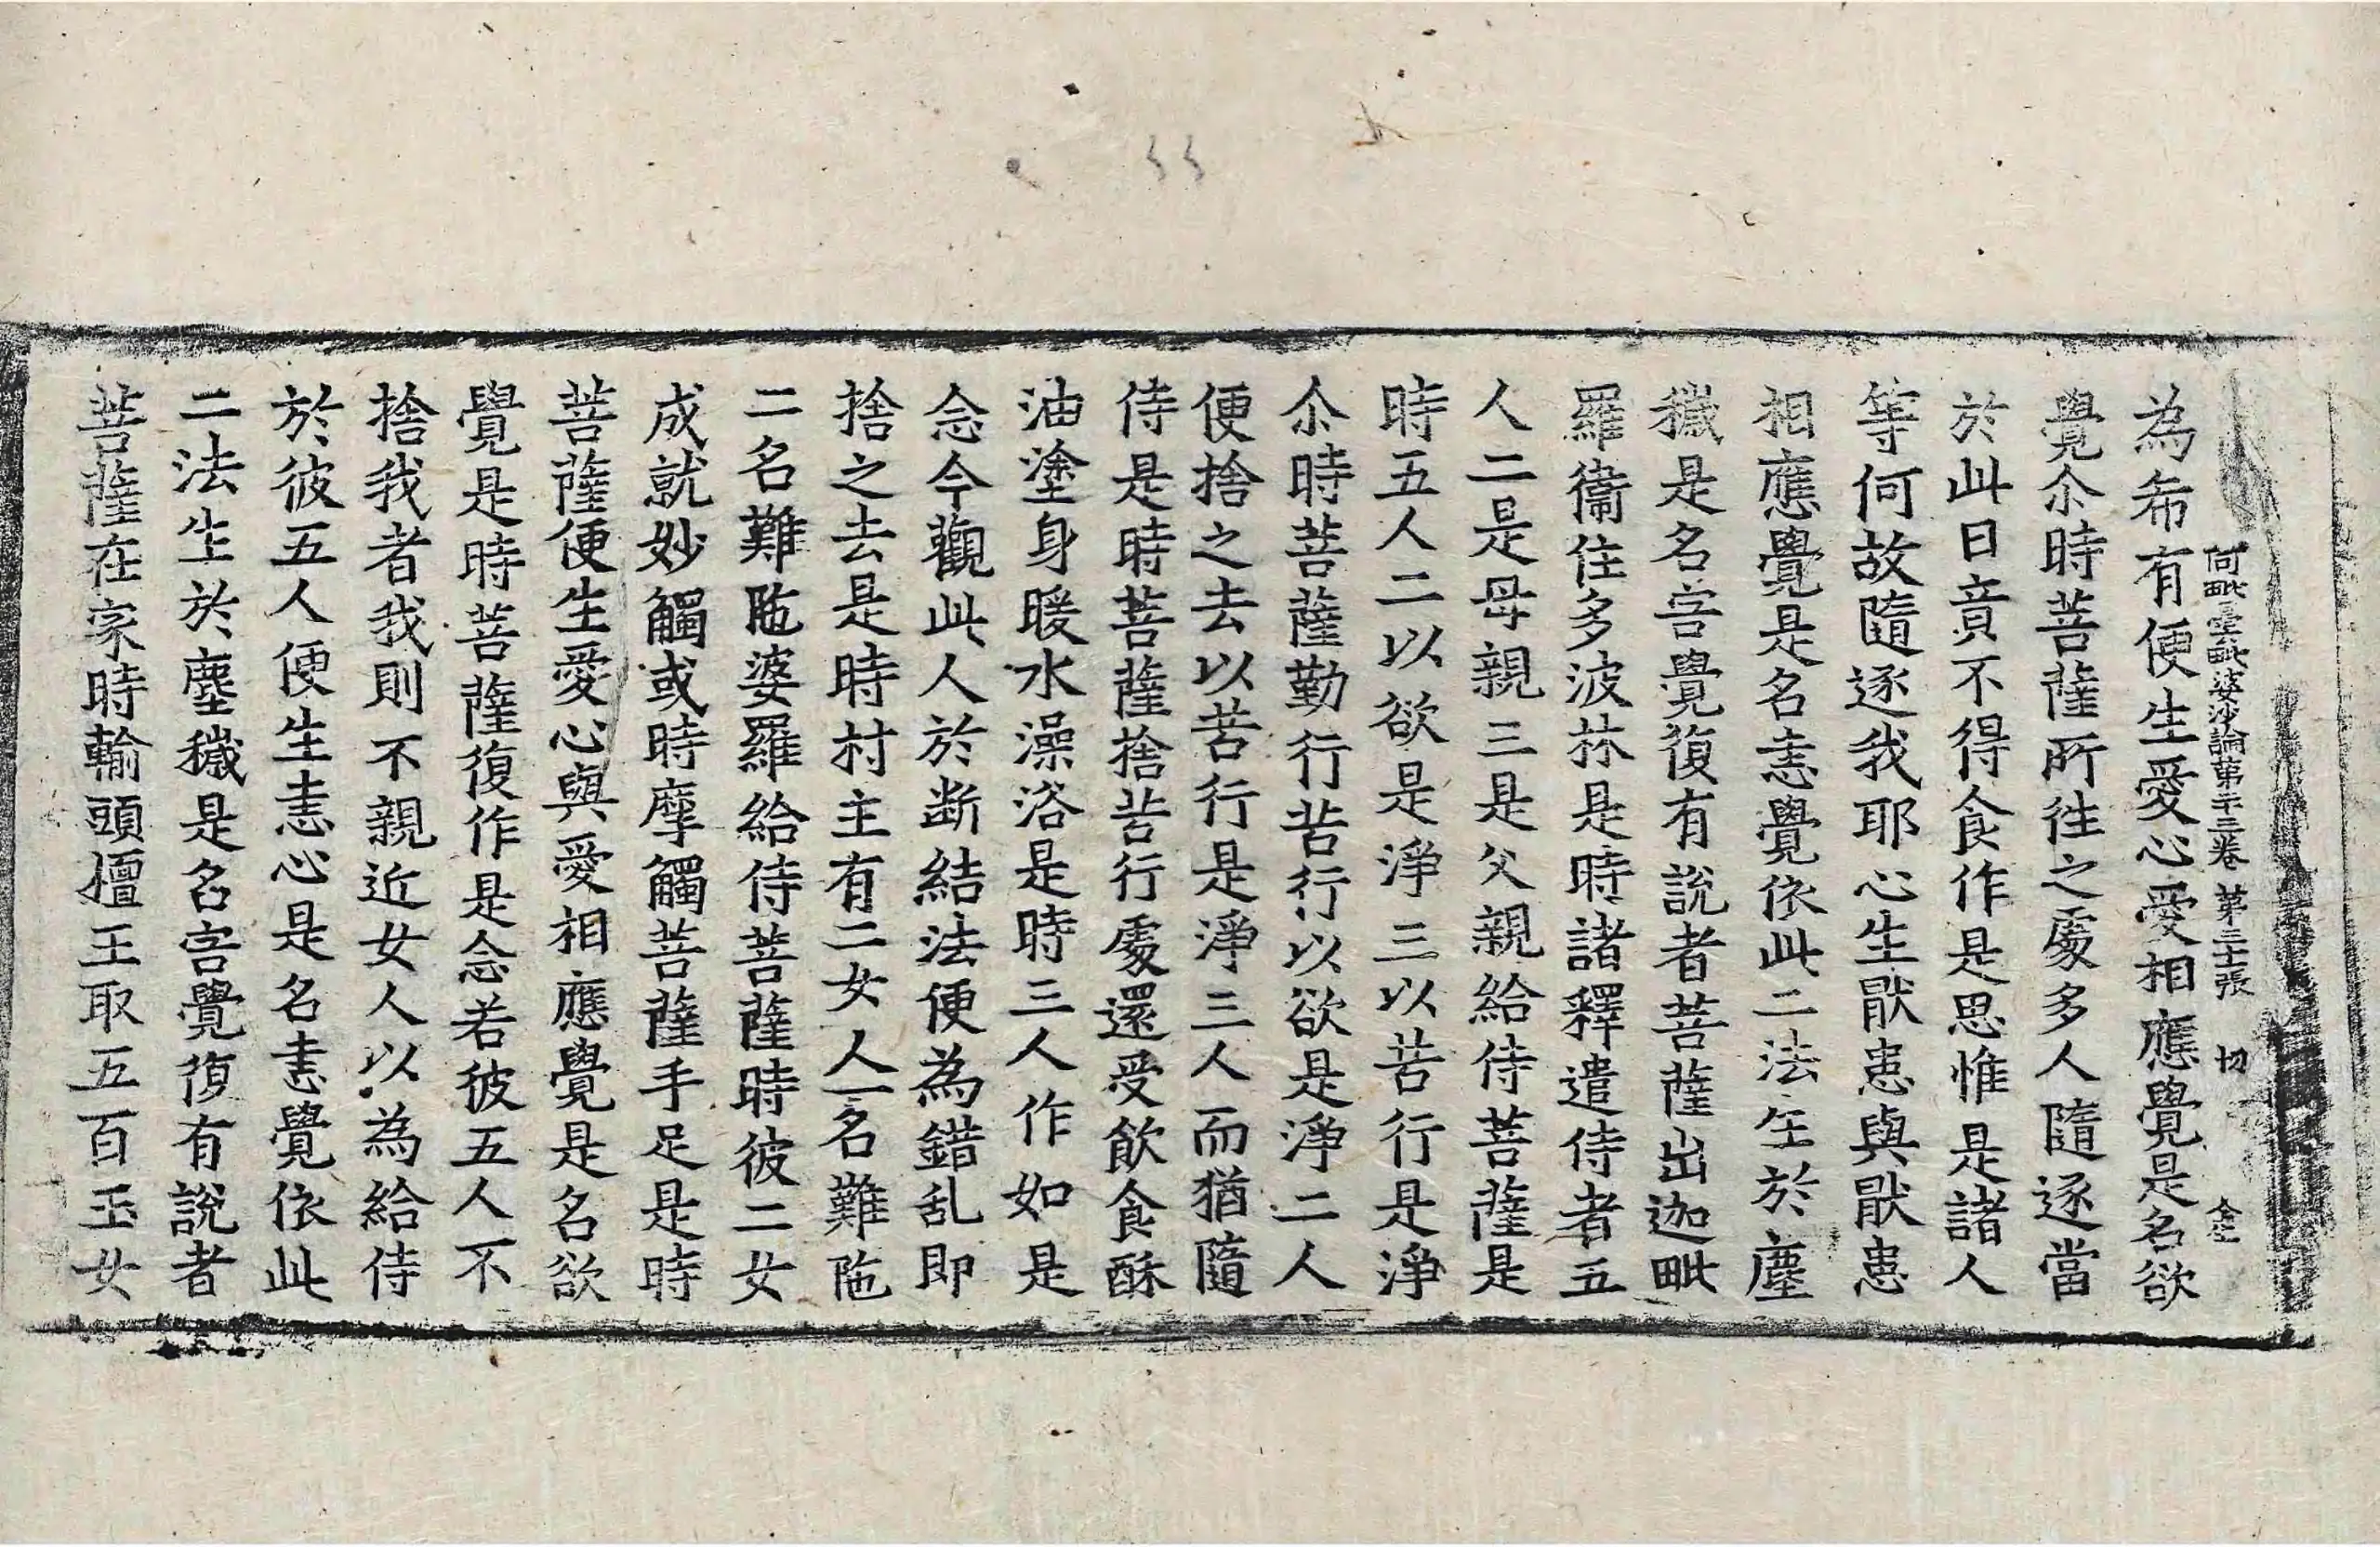 為希有便生愛心愛相應覺是名欲
阿毗曇毗婆沙論第二十三卷 第二十張 切
覺尒時菩薩所往之處多人隨逐當
於此日竟不得食作是思惟是諸人
等何故隨逐我耶心生猒恚與猒恚
相應覺是名恚覺依此二法生於塵
穢是名害覺復有說者菩薩出迦毗
羅衞住多波林是時諸釋遣侍者五
人二是母親三是父親給侍菩薩是
時五人二以欲是淨三以苦行是淨
尒時菩薩勤行苦行以欲是淨二人
便捨之去以苦行是淨三人而猶隨
侍是時菩薩捨苦行處還受飲食酥
油塗身暖水澡浴是時三人作如是
念今觀此人於断結法便為錯乱即
捨之去是時村主有二女人一名難陁
二名難陁婆羅給侍菩薩時彼二女
成就妙觸或時摩觸菩薩手足是時
菩薩便生愛心與愛相應覺是名欲
覺是時菩薩復作是念若彼五人不
捨我者我則不親近女人以為給侍
於彼五人便生恚心是名恚覺依此
二法生於塵穢是名害覺復有說者
菩薩在家時輸頭檀王取五百玉女